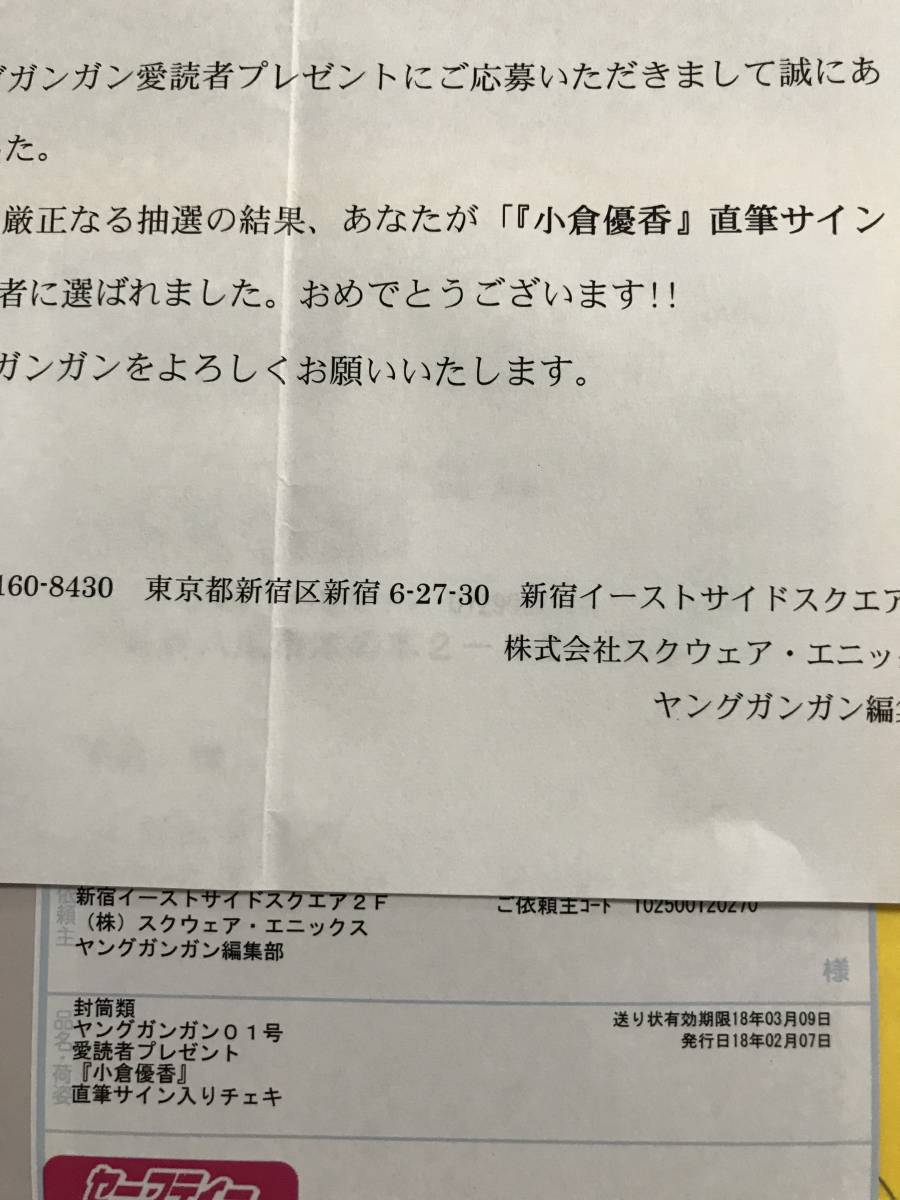 グガンガン愛読者プレゼントにご応募いただきまして誠にあ
した。
厳正なる抽選の結果、あなたが「『小倉優香』直筆サイン
者に選ばれました。おめでとうございます!!
ガンガンをよろしくお願いいたします。
160-8430　東京都新宿区新宿 6-27-30　新宿イーストサイドスクエア
株式会社スクウェア・エニック
ヤングガンガン編集
依頼主
新宿イーストサイドスクエア２Ｆ　ご依頼主コード 102500120270
（株）スクウェア・エニックス
ヤングガンガン編集部
様
品名・荷姿
封筒類
ヤングガンガン０１号
愛読者プレゼント
『小倉優香』
直筆サイン入りチェキ
送り状有効期限18年03月09日
発行日18年02月07日